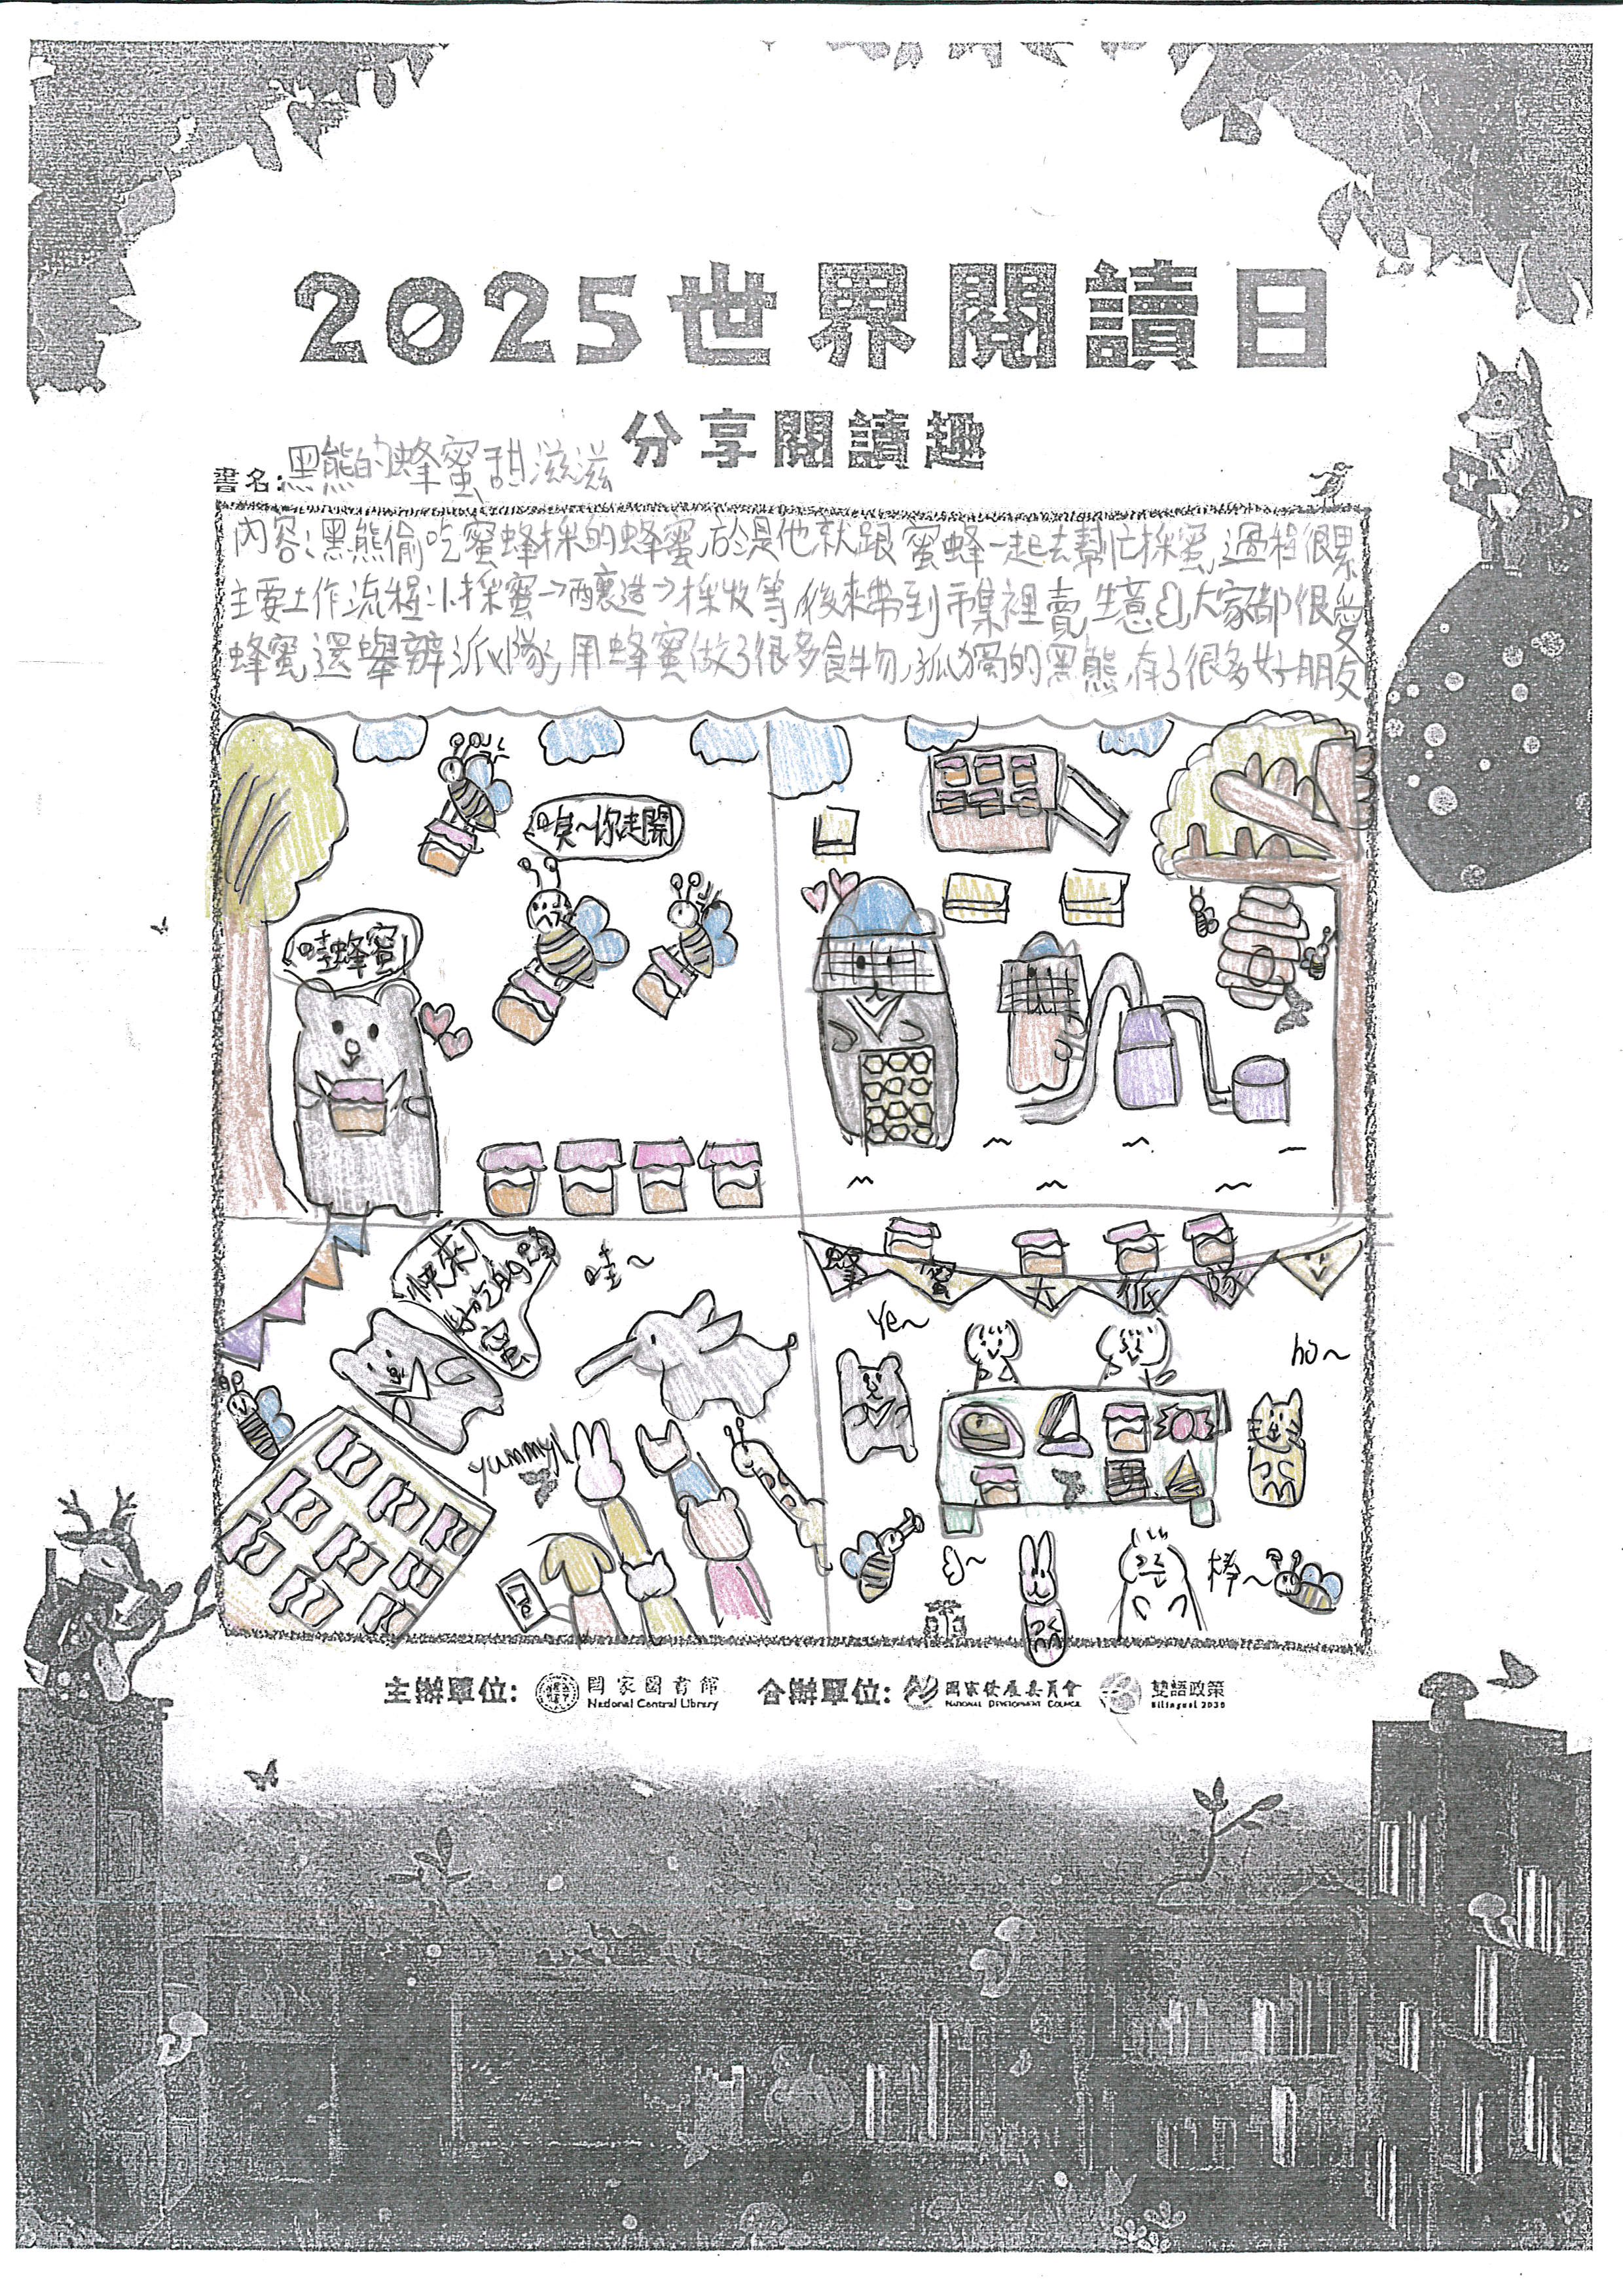 2025世界閱讀日
分享閱讀趣
書名:黑熊的蜂蜜甜滋滋
內容:黑熊偷吃蜜蜂採的蜂蜜,於是他就跟蜜蜂一起去幫忙採蜜,過程很累
主要工作流程:採蜜→釀造→採收等,後來帶到市集裡賣,生意,大家都很愛
蜂蜜,還舉辦派隊,用蜂蜜做了很多食物,孤獨的黑熊,有了很多好朋友
唉~你走開
哇蜂蜜
快來
哇~
ye~
ho~
yummy!
棒~
主辦單位: 國家圖書館 合辦單位: 國家發展委員會 雙語政策
National Central Library NATIONAL DEVELOPMENT COUNCIL Bilingual 2030